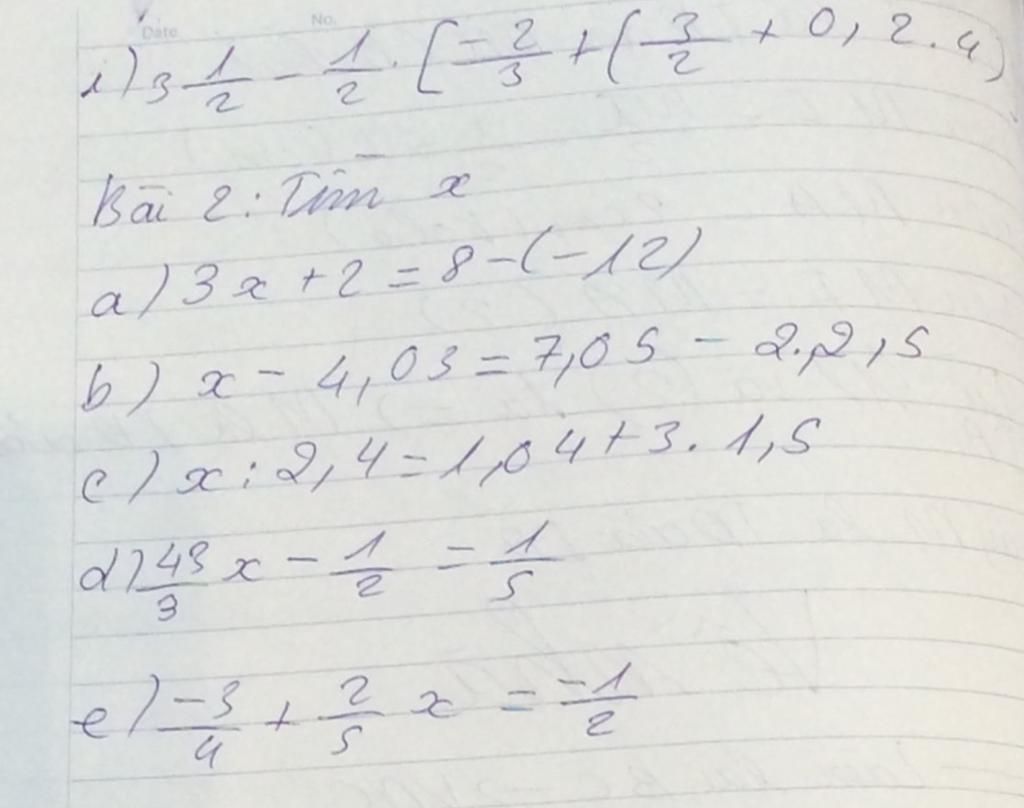 Date No.
i) 3 1/2 - 1/2 . [ -2/3 + ( 3/2 + 0,2.4 )
Bài 2: Tìm x
a) 3x + 2 = 8 - (-12)
b) x - 4,03 = 7,05 - 2.2,5
c) x : 2,4 = 1,04 + 3. 1,5
d) 49/3 x - 1/2 = 1/5
e) -3/4 + 2/5 x = -1/2